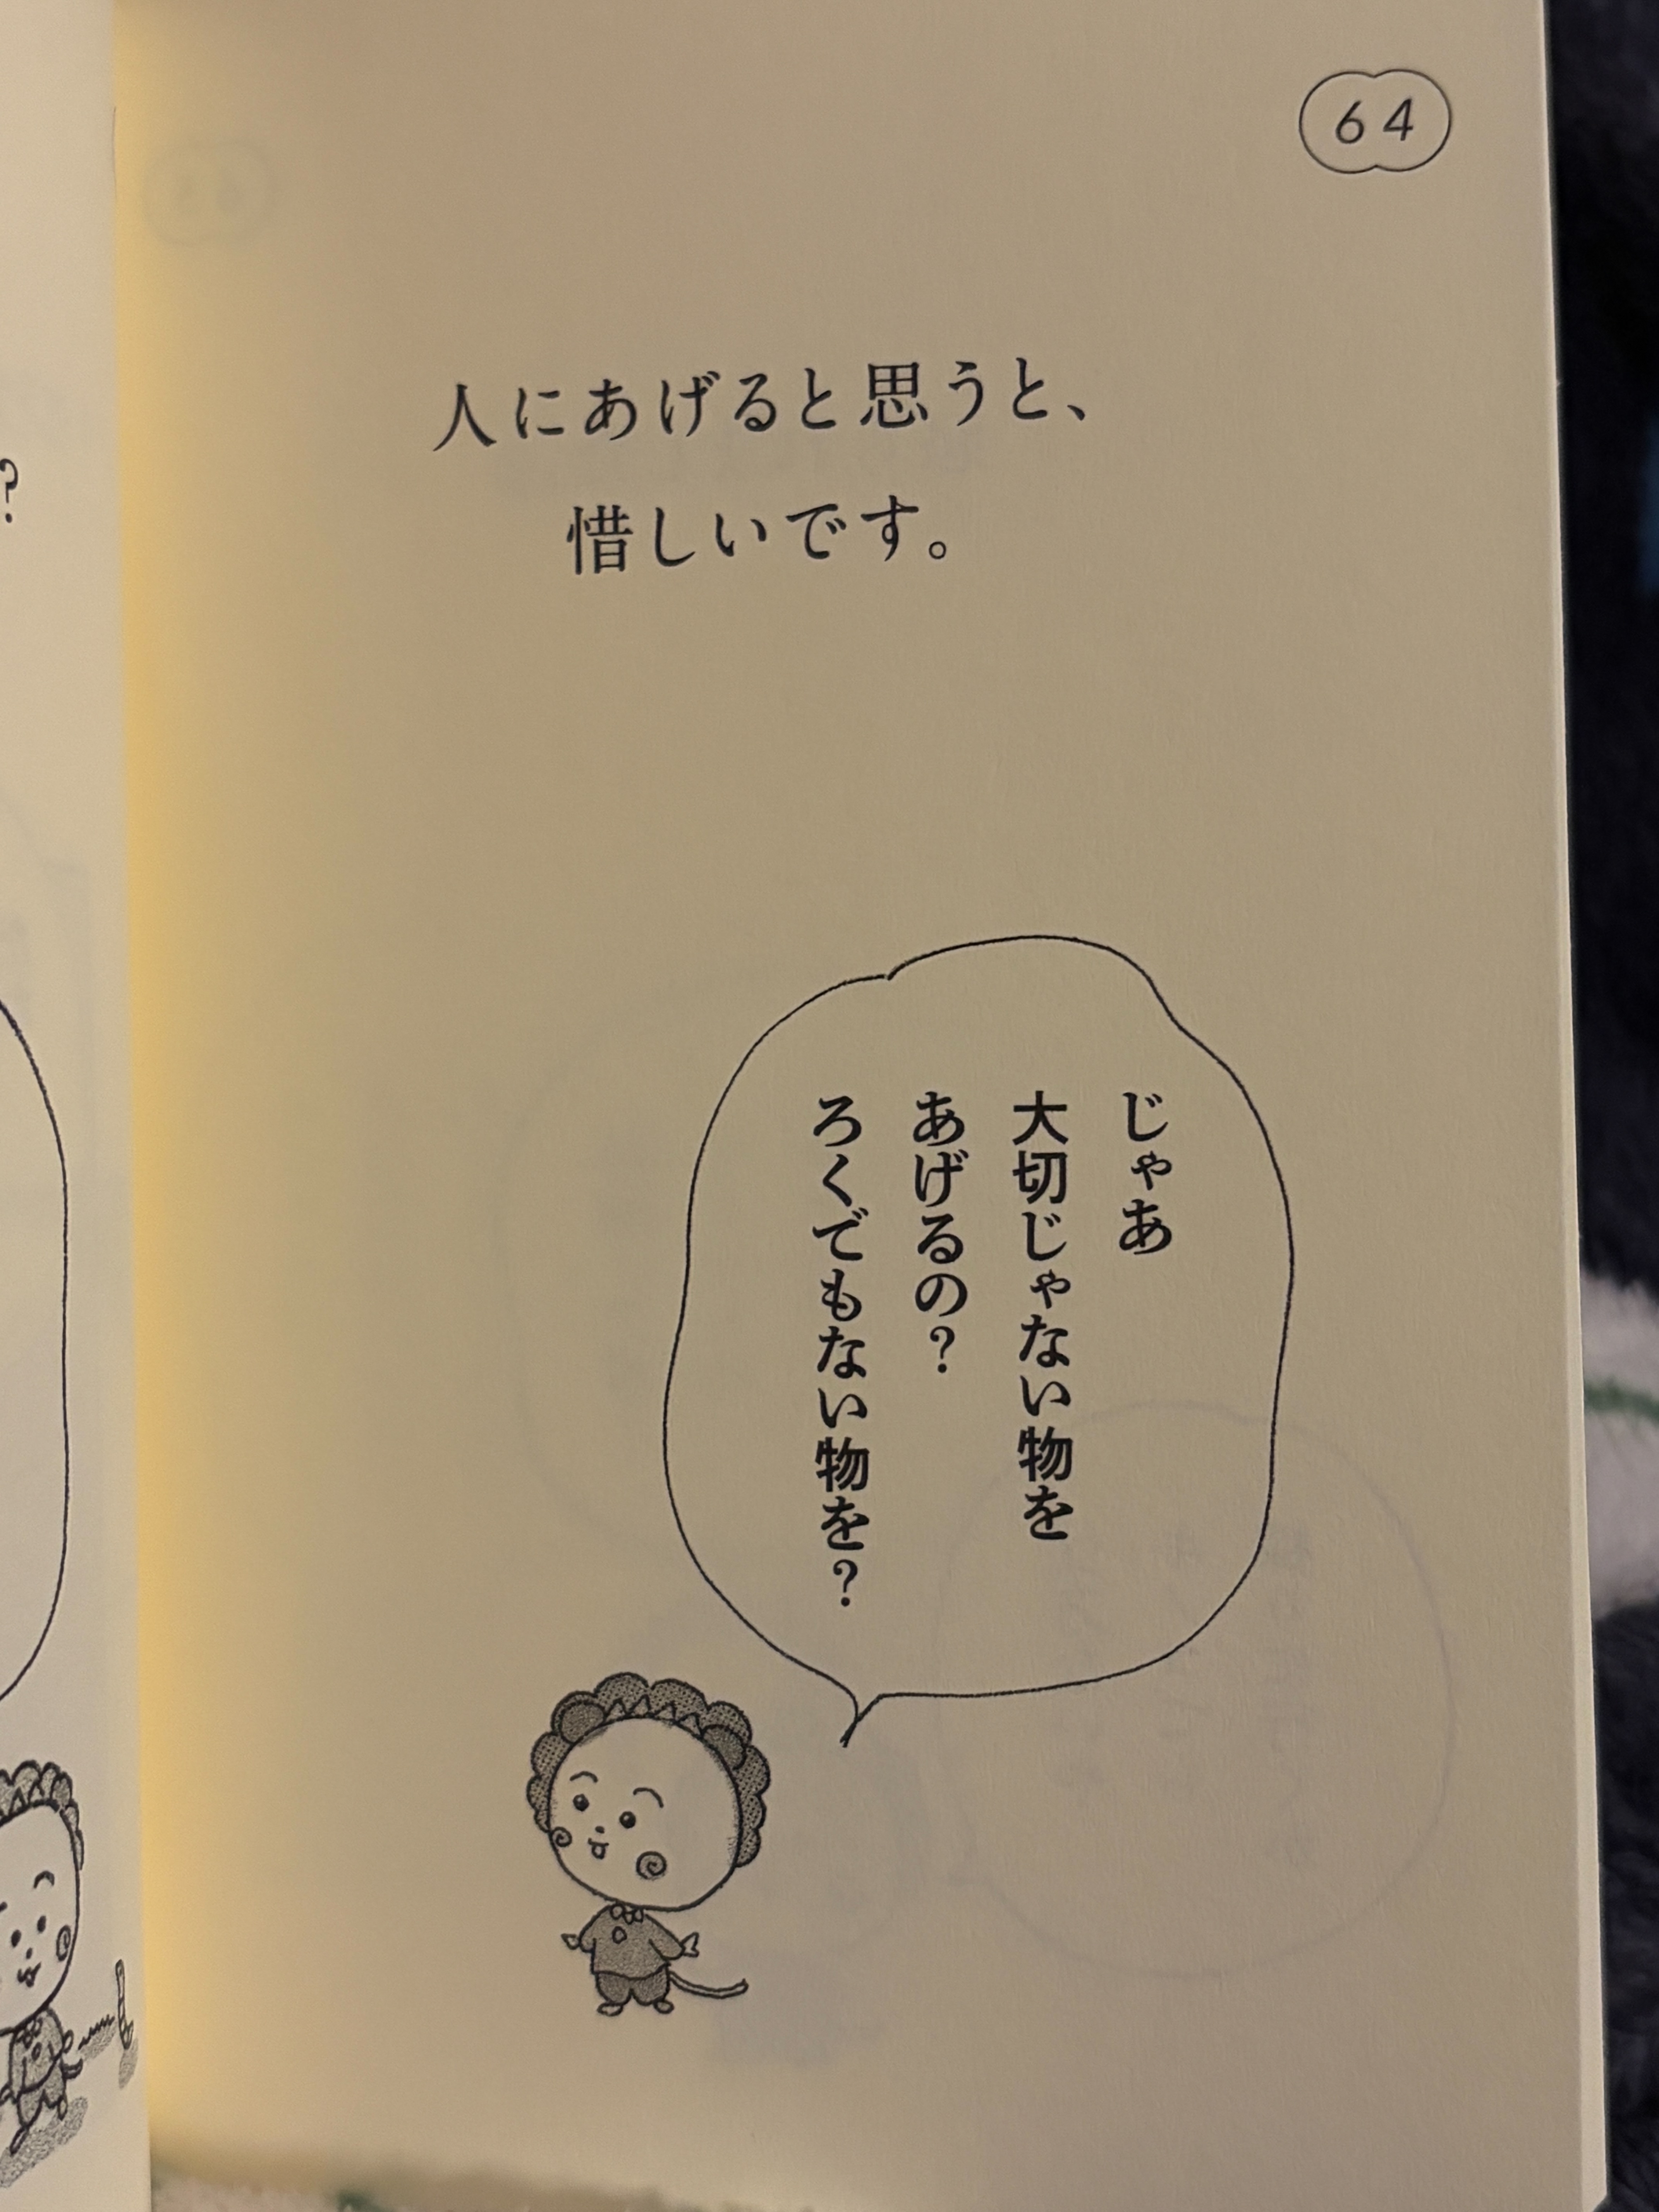 64
人にあげると思うと、
惜しいです。
じゃあ
大切じゃない物を
あげるの？
ろくでもない物を？
？